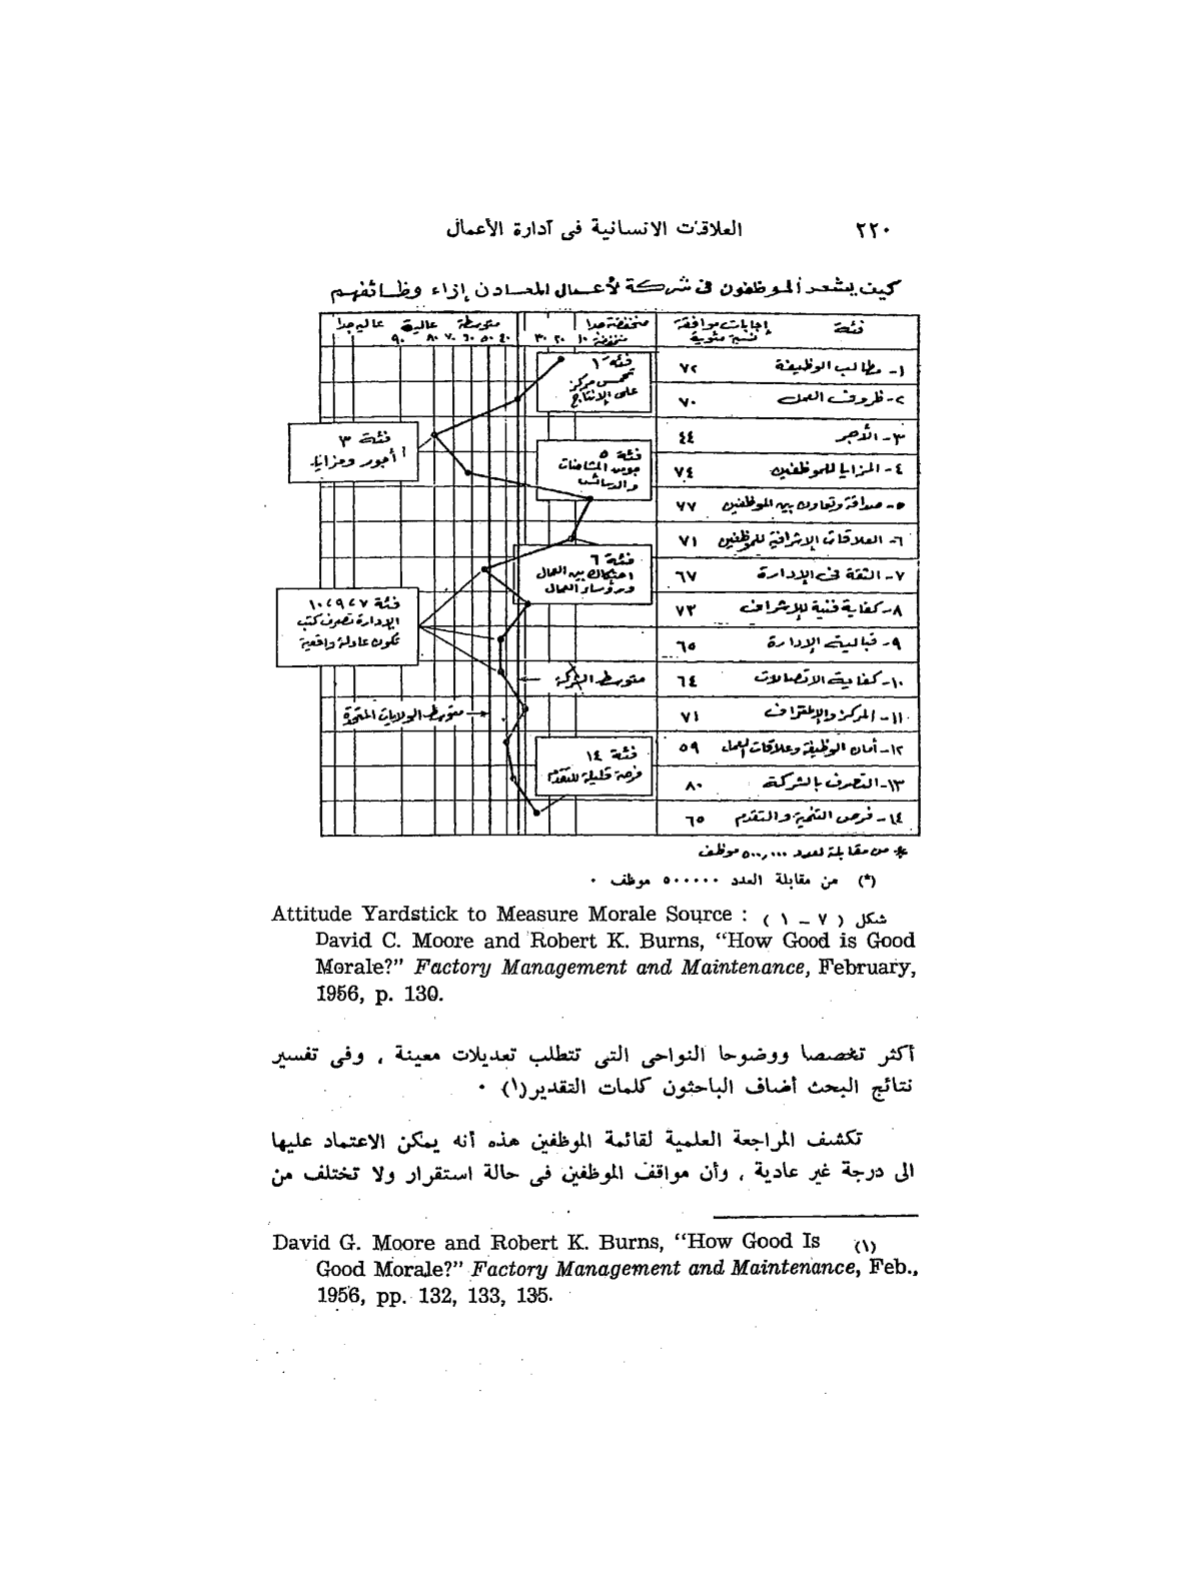 ٢٢٠ العلاقات الانسانية فى آدارة الأعمال
كيف يشعر الموظفون فى شركة لأعمال المعادن إزاء وظائفهم
فئة إجابات موافقة نسبة مئوية منخفضة جدا منخفضة متوسطة عالية عاليه جدا
١٠ ٢٠ ٣٠ ٤٠ ٥٠ ٦٠ ٧٠ ٨٠ ٩٠
١- مطالب الوظيفة ٧٢
٢- ظروف العمل ٧٠
٣- الأجر ٤٤
٤- المزايا للموظفين ٧٤
٥- صداقة وتعاون بين الموظفين ٧٧
٦- العلاقات الإشرافية للموظفين ٧١
٧- الثقة فى الإدارة ٦٧
٨- كفاية فنية للإشراف ٧٣
٩- الإدارة ٦٥
١٠- كفاية الاتصالات ٦٤
١١- المركز والإعتراف ٧١
١٢- أمان الوظيفة وعلاقات العمل ٥٩
١٣- التصرف بالشركة ٨٠
١٤- فرص التنمية والتقدم ٦٥
فئة ١
تحمس مركز
على الإنتاج
فئة ٣
أجور ومزايا
فئة ٥
فئة ٦
احتكاك بين العمال
ورؤساء العمال
فئة ٧، ٩، ١٠
الإدارة تصرف كتب
تكون عادلة واقعية
متوسط الشركة
متوسط الولايات المتحدة
فئة ١٤
فرصة قليلة للتقدم
* من مقابلة لعدد ٥٠٠,٠٠٠ موظف
(*) من مقابلة العدد ٥٠٠٠٠٠ موظف ٠
Attitude Yardstick to Measure Morale Source : شكل ( ٧ – ١ )
David C. Moore and Robert K. Burns, “How Good is Good
Morale?” Factory Management and Maintenance, February,
1956, p. 130.
أكثر تخصصا ووضوحا النواحى التى تتطلب تعديلات معينة ، وفى تفسير
نتائج البحث أضاف الباحثون كلمات التقدير(١) ٠
تكشف المراجعة العلمية لقائمة الموظفين هذه أنه يمكن الاعتماد عليها
الى درجة غير عادية ، وأن مواقف الموظفين فى حالة استقرار ولا تختلف من
David G. Moore and Robert K. Burns, “How Good Is (١)
Good Morale?” Factory Management and Maintenance, Feb.,
1956, pp. 132, 133, 135.